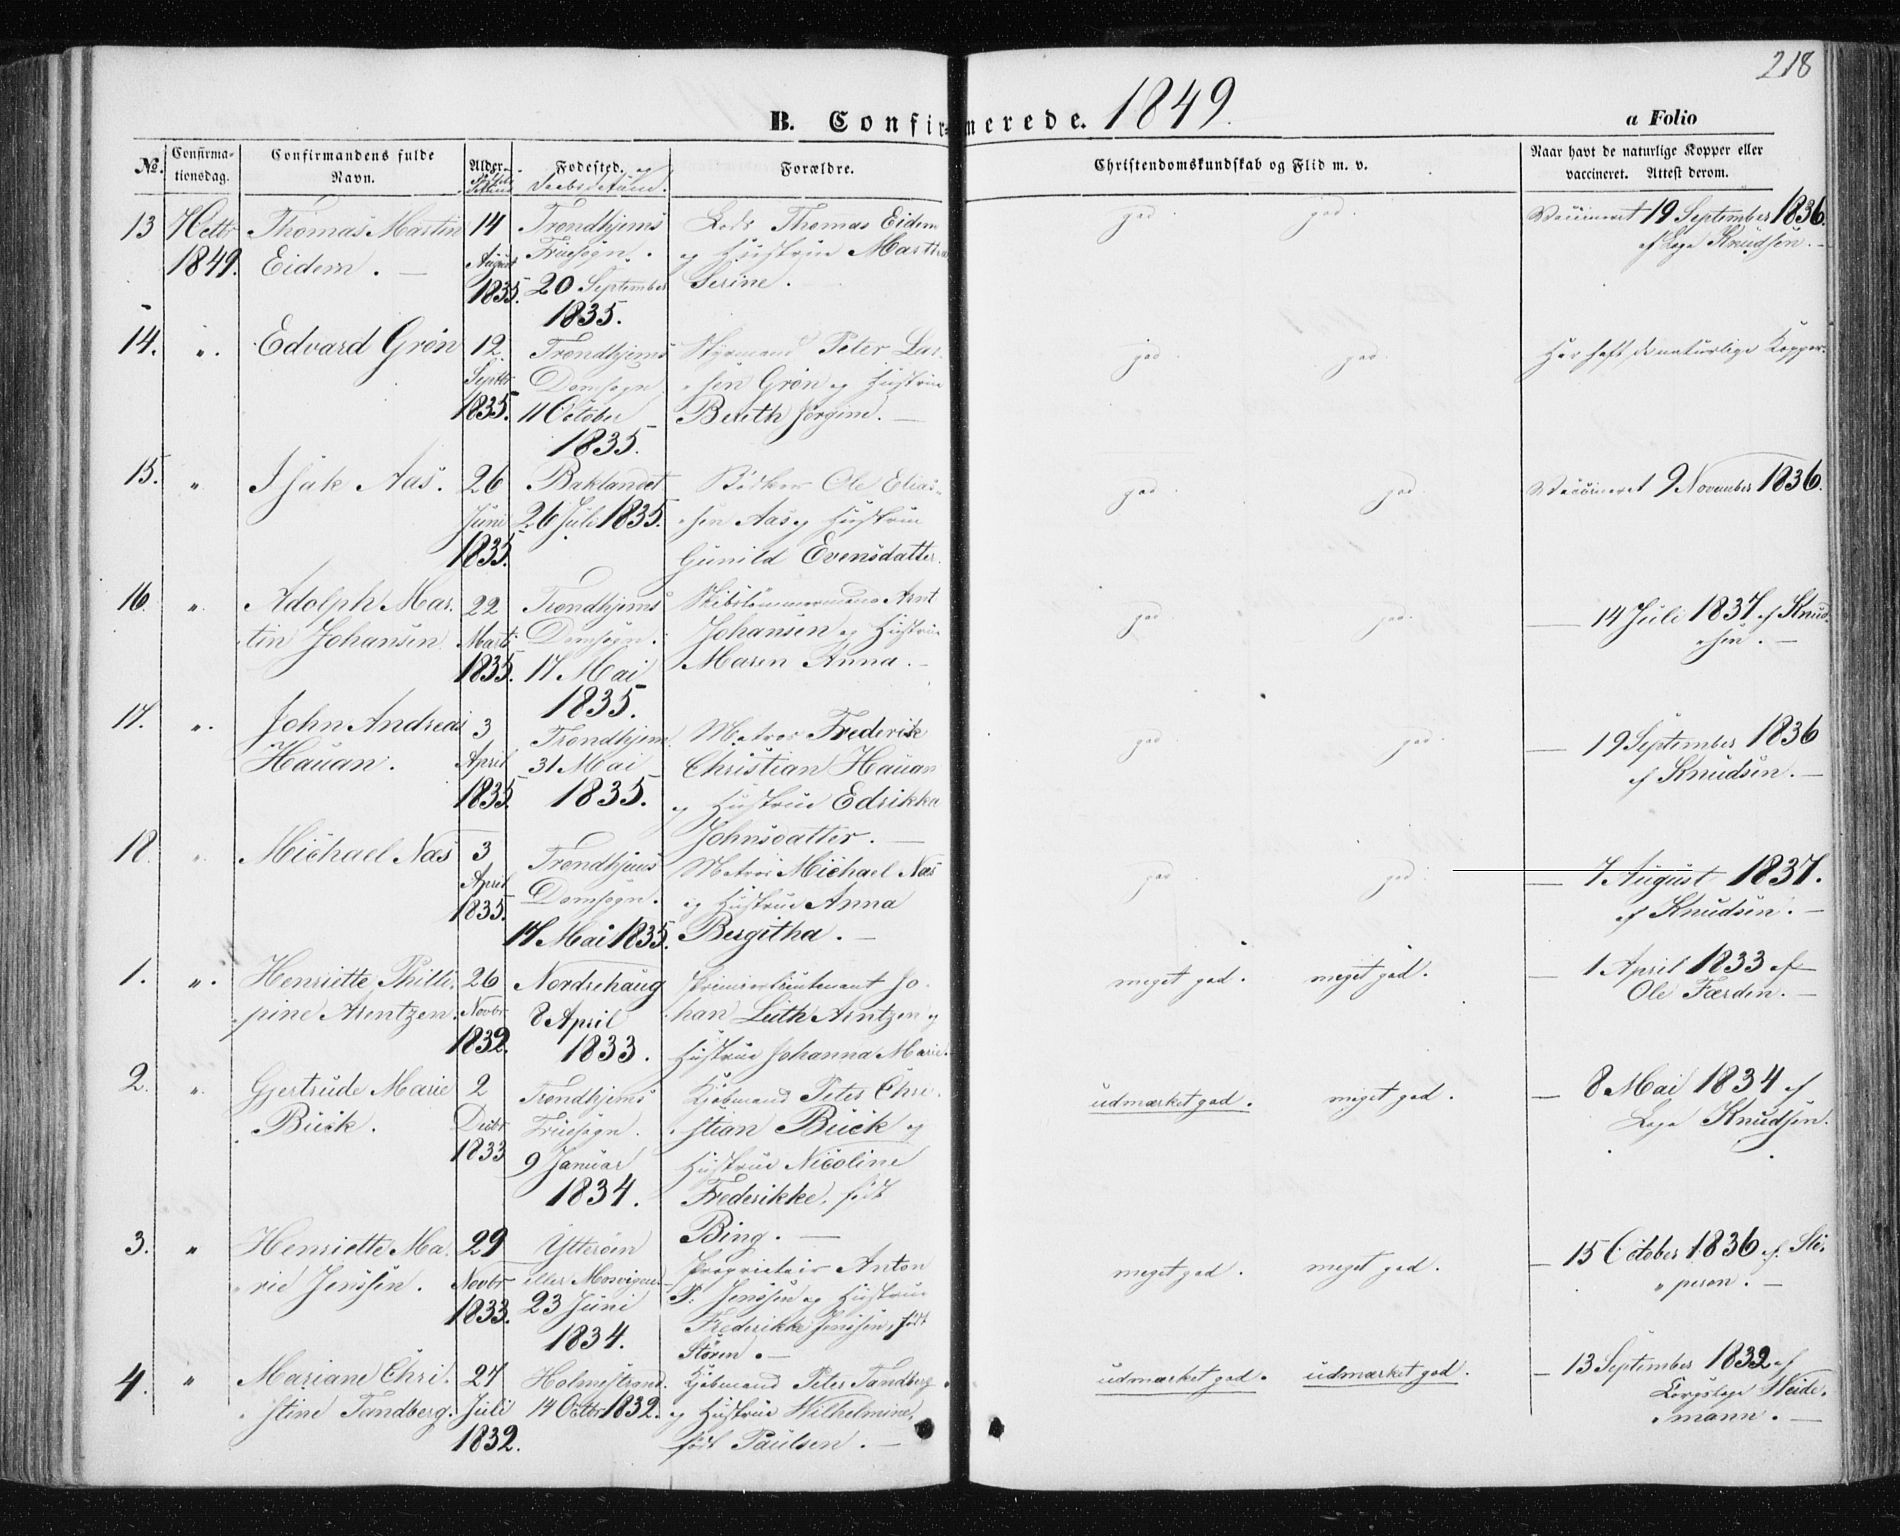 218
B. Confirmerede. 1849.
a Folio
No. Confirmationsdag. Confirmandens fulde Navn. Alder. Fødested og Daabsdatum. Forældre. Christendomskundskab og Flid m. v. Naar havt de naturlige Kopper eller vaccineret. Attest derom.
13 Octbr Thomas Martin 14 Trondhjems Lods Thomas Eidem god. god. Vaccineret 19 September 1836.
1849. Eidem. — August Fruesogn. og Hustrue Martha af Læge Knudsen. —
1835. 20 September Serine. —
1835.
14. „. Edvard Grøn 12. Trondhjems Styrmand Peter Lar- god. god. Har haft de naturlige Kopper.
Septbr Domsogn sen Grøn og Hustrue
1835. 11 October Bereth Jørgine. —
1835.
15. „ Isak Aas. 26 Baklandet Bødker Ole Elias- god. god. Vaccineret 9 November 1836.
Juni 26 Juli 1835. sen Aas og Hustrue
1835. Gunild Evensdatter.
16 „. Adolph Mar- 22 Trondhjems Skibstømmermand Arnt god. god. — 14 Juli 1837 af Knud-
tin Johansen. Marti Domsogn. Johansen og Hustrue sen. —
1835. 17 Mai Maren Anna. —
1835.
17. „. John Andreas 3 Trondhjem Matros Frederik god. god. — 19 September 1836
Hauan. April 31 Mai Christian Hauan af Knudsen. —
1835. 1835. og Hustrue Edrikka
Johnsdatter. —
18. „ Michael Næs 3 Trondhjems Matros Michael Næs god god. — 7 August 1837.
April Domsogn. og Hustrue Anna af Knudsen. —
1835. 17 Mai 1835. Bergitha. —
1. „. Henriette Philli- 26 Nordrehaug Premierlieutenant Jo- meget god. meget god. — 1 April 1833 af
pine Arentzen. Novbr 8 April han Lüth Arntzen og Ole Færden. —
1832. 1833. Hustrue Johanna Marie.
2. „. Gjertrude Marie 2 Trondhjems Kjøbmand Peter Chri- udmærket god. meget god. — 8 Mai 1834 af
Buck. Decbr Fruesogn. stian Buck og Læge Knudsen.
1833 9 Januar Hustrue Nicoline
1834. Frederikke, født
Bing. —
3. „ Henriette Ma- 29 Ytterøen Proprietair Anton meget god. meget god. — 15 October 1836 af
rie Jenssen. Novbr eller Mosvigen P. Jenssen og Hustrue
1833. 23 Juni Frederikke Jenssen, født
1834. Støren. —
4. „ Mariane Chri- 27 Holmestrand. Kjøbmand Peter Tandberg udmærket god. udmærket god. — 13 September 1832 af
stine Tandberg. Juli 14 Octbr 1832. og Hustrue Wilhelmine, Corpslæge Weide-
1832. født Paulsen. — mann. —